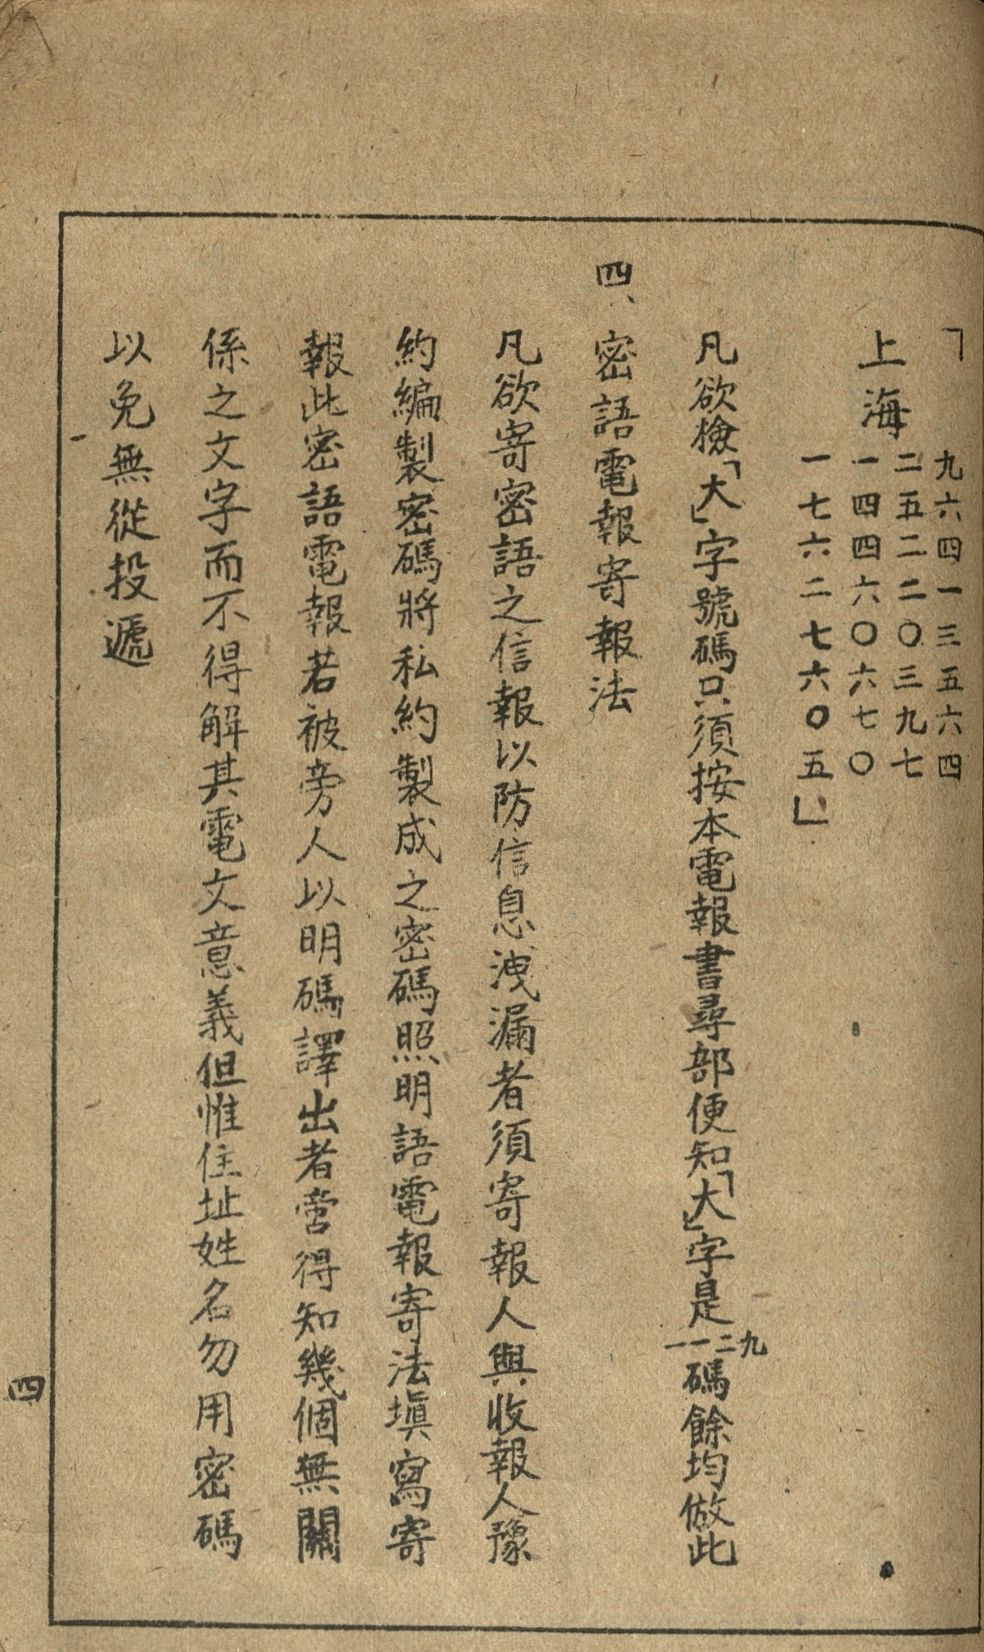 「
上海
一一二九
七四五六
六四二四
二六二一
七〇〇三
六六三五
〇七九六
五〇七四」
凡欲檢「大」字號碼只須按本電報書尋部便知「大」字是一一二九碼餘均倣此
四、密語電報寄報法
凡欲寄密語之信報以防信息洩漏者須寄報人與收報人豫
約編製密碼將私約製成之密碼照明語電報寄法塡寫寄
報此密語電報若被旁人以明碼譯出者啻得知幾個無關
係之文字而不得解其電文意義但惟住址姓名勿用密碼
以免無從投遞
四